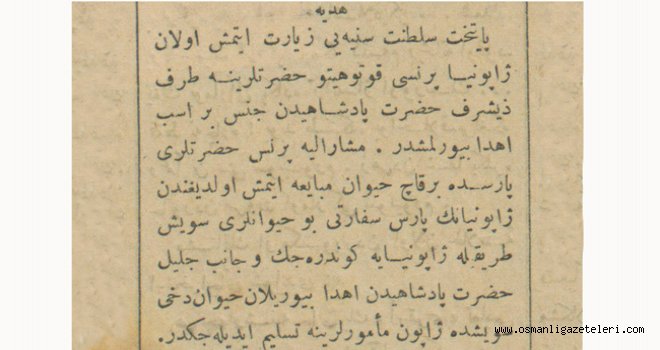 هديه
پايتخت سلطنت سنيه‌يى زيارت ايتمش اولان
ژاپونيا پرنسى قوتوهيتو حضرتلرينه طرف
ذيشرف حضرت پادشاهيدن جنس بر اسب
اهدا بيورلمشدر . مشاراليه پرنس حضرتلرى
پارسده برقاچ حيوان مبايعه ايتمش اولديغندن
ژاپونيانك پارس سفارتى بو حيوانلرى سويش
طريقيله ژاپونيايه كوندره‌جك و جانب جليل
حضرت پادشاهيدن اهدا بيوريلان حيوان دخى
سويشده ژاپون مأمورلرينه تسليم ايديله‌جكدر.
www.osmanligazeteleri.com